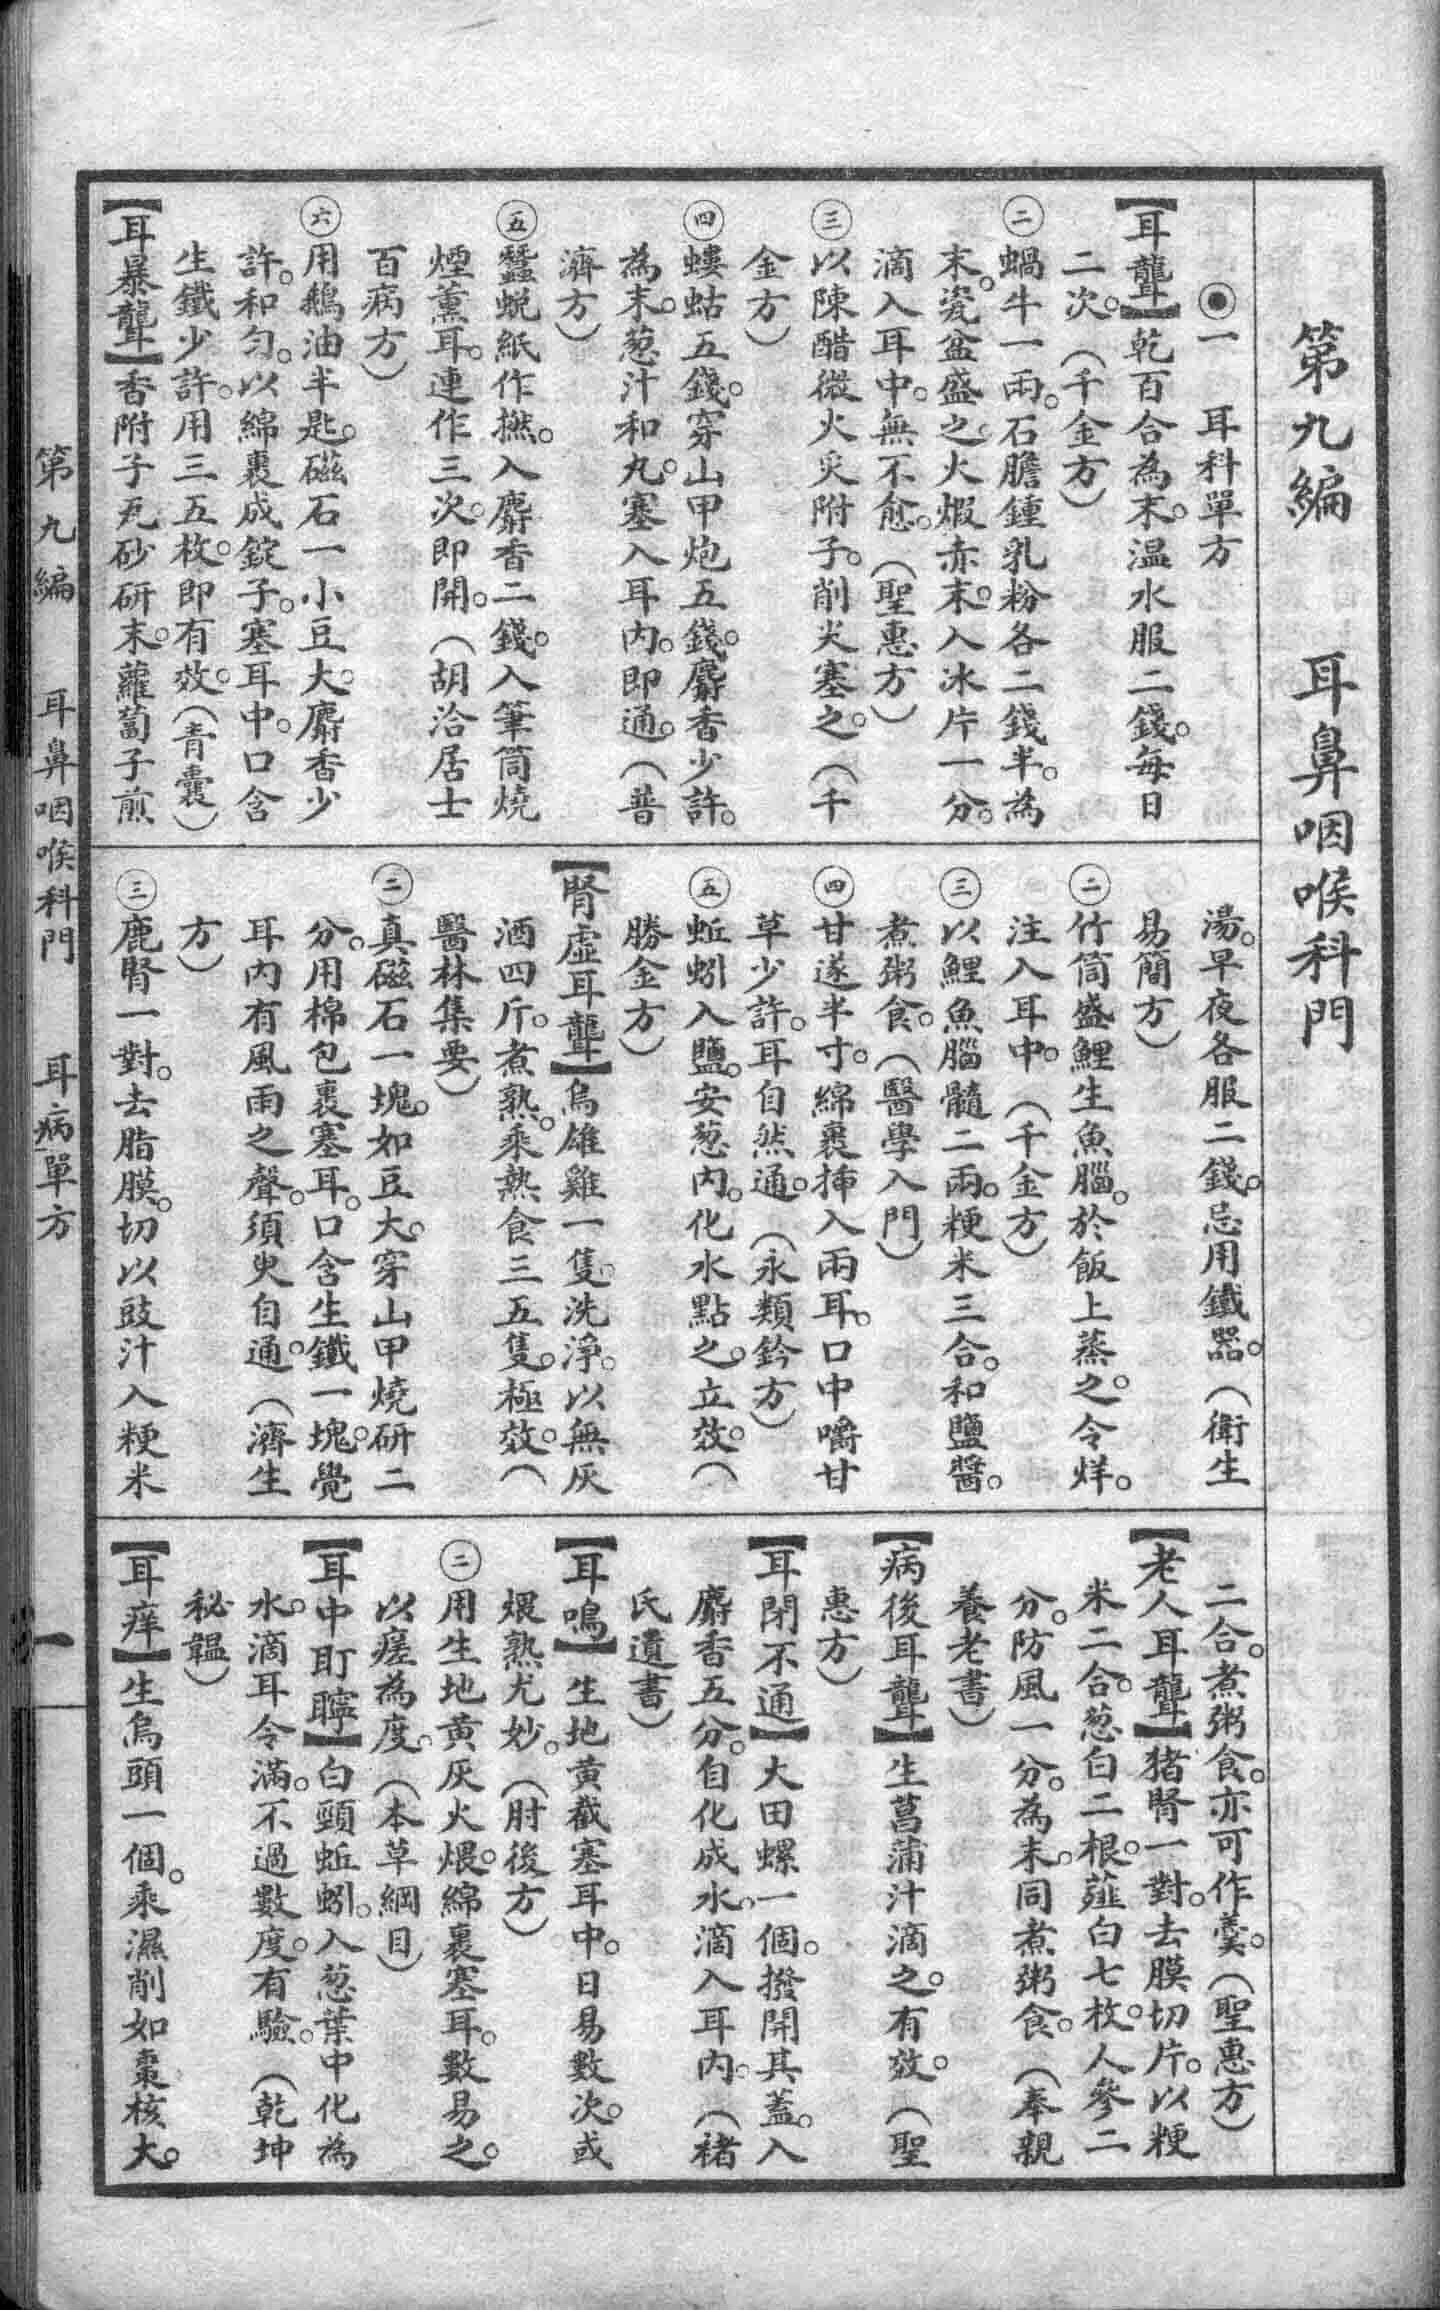 第九編　耳鼻咽喉科門
◉一　耳科單方
【耳聾】乾百合為末。温水服二錢。每日
二次。（千金方）
㊁蝸牛一兩。石膽鍾乳粉各二錢半。為
末。瓷盆盛之火煆赤末。入冰片一分。
滴入耳中。無不愈。（聖惠方）
㊂以陳醋微火炙附子。削尖塞之。（千
金方）
㊃螻蛄五錢。穿山甲炮五錢。麝香少許。
為末。葱汁和丸。塞入耳内。即通。（普
濟方）
㊄蠶蛻紙作撚。入麝香二錢。入筆筒燒
煙薰耳。連作三次。即開。（胡洽居士
百病方）
㊅用鵝油半匙。磁石一小豆大。麝香少
許。和勻。以綿裹成錠子。塞耳中。口含
生鐵少許。用三五枚。即有效。（青囊）
【耳暴聾】香附子瓦砂研末。蘿蔔子煎
湯。早夜各服二錢。忌用鐵器。（衛生
易簡方）
㊁竹筒盛鯉生魚腦。於飯上蒸之。令烊。
注入耳中。（千金方）
㊂以鯉魚腦髓二兩。粳米三合。和鹽醬。
煮粥食。（醫學入門）
㊃甘遂半寸。綿裹插入兩耳。口中嚼甘
草少許。耳自然通。（永類鈐方）
㊄蚯蚓入鹽。安葱内。化水點之。立效。（
勝金方）
【腎虛耳聾】烏雄雞一隻。洗淨。以無灰
酒四斤。煮熟。乘熱食三五隻。極效。（
醫林集要）
㊁真磁石一塊。如豆大。穿山甲燒研二
分。用棉包裹塞耳。口含生鐵一塊。覺
耳内有風雨之聲。須臾自通。（濟生
方）
㊂鹿腎一對。去脂膜。切以豉汁入粳米
二合。煮粥食。亦可作羹。（聖惠方）
【老人耳聾】猪腎一對。去膜切片。以粳
米二合。葱白二根。薤白七枚。人參二
分。防風一分。為末。同煮粥食。（奉親
養老書）
【病後耳聾】生菖蒲汁滴之。有效。（聖
惠方）
【耳閉不通】大田螺一個。撥開其蓋。入
麝香五分。自化成水。滴入耳内。（褚
氏遺書）
【耳鳴】生地黃截塞耳中。日易數次。或
煨熟尤妙。（肘後方）
㊁用生地黃灰火煨。綿裹塞耳。數易之。
以瘥為度。（本草綱目）
【耳中耵聹】白頸蚯蚓。入葱葉中化為
水。滴耳令滿。不過數度。有驗。（乾坤
秘韞）
【耳痒】生烏頭一個。乘濕削如棗核大。
第九編　耳鼻咽喉科門　耳病單方　一